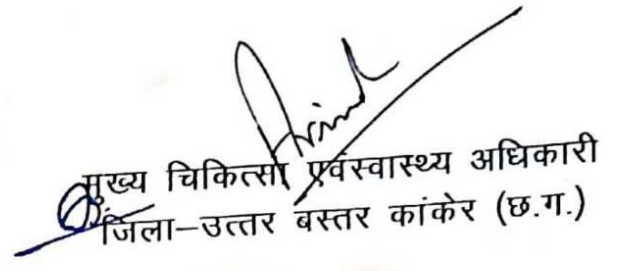 मुख्य चिकित्सा एवंस्वास्थ्य अधिकारी
जिला–उत्तर बस्तर कांकेर (छ.ग.)